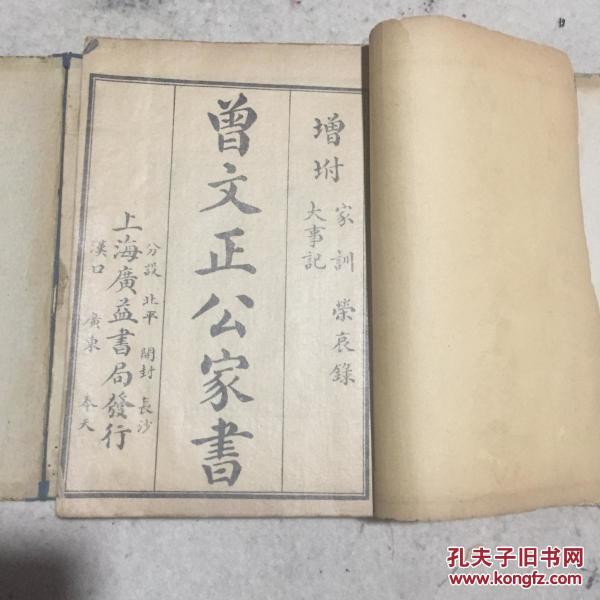 增坿
家訓 榮哀錄
大事記
曾文正公家書
分設 北平 開封 長沙
上海廣益書局發行
漢口 廣東 奉天
孔夫子旧书网
www.kongfz.com